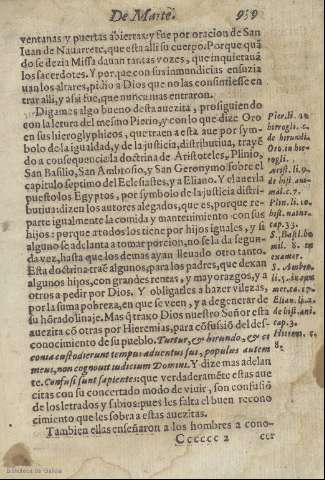 De Marte. 959
ventanas y puertas abiertas: y fue por oracion de San
Iuan de Nauarrete, que esta alli su cuerpo. Porque quã
do se dezia Missa dauan tantas vozes, que inquietauã
los sacerdotes. Y porque con sus inmundicias ensuzia
uan los altares, pidio a Dios que no las consintiesse en
trar alli, y assi fue, que nunca mas entraron.
Digamos algo bueno desta auezita, prosiguiendo
con la letura del mesmo Pierio, y con lo que dize Oro
en sus hieroglyphicos, que traen a esta aue por symbo
lo de la igualdad, y de la justicia distributiua, trayẽ
do a consequencia la doctrina de Aristoteles, Plinio,
San Basilio, San Ambrosio, y San Geronymo sobre el
capitulo septimo del Eclesiastes, y a Eliano. Y el auer la
puesto los Egypcios, por symbolo de la justicia distri
butiua dizen los autores alegados, que es, porque re-
parte igualmente la comida y mantenimiento con sus
hijos: porque a todos los tiene por hijos iguales, y si
alguno se adelanta a tomar porcion, no se la da segun-
da voz, hasta que los demas ayan lleuado otro tanto.
Esta doctrina traẽ algunos, para los padres, que dexan
algunos hijos, con grandes rentas, y mayorazgos, y a
otros a pedir por Dios. Y obliganles a hazer vilezas,
por la suma pobreza, en que se veen, y a degenerar de
su hõrado linaje. Mas q̃ traxo Dios nuestro Señor esta
auezita cõ otras por Hieremias, para cõfusiõ del des-
conocimiento de su pueblo. Turtur, & hirundo, & ci
conia custodierunt tempus aduentus sui, populus autem
meus, non cognouit iudicium Domini. Y dize mas adelan
te. Confusi sunt sapientes: que verdaderamẽte estas aue
citas con su concertado modo de viuir, son confusiõ
de los letrados y sabios: pues les falta el buen recono
cimiento que les sobra a estas auezitas.
Tambien ellas enseñaron a los hombres a cono-
Cccccc 2 cer
Pier. li. 22
hierogli. c.
de hirundi.
Oro. in hie-
rogli.
Arist. li. 9.
de hist. ani-
mal. c. 7.
Plin. li. 10.
hist. natur.
cap. 33.
S. Basil. ho
mil. 8. in
examer.
S. Ambro.
li. 5. in exam
Elian. li.
de hist. ani-
cap. 3.
Hierem. c.
8.
Biblioteca de Galicia